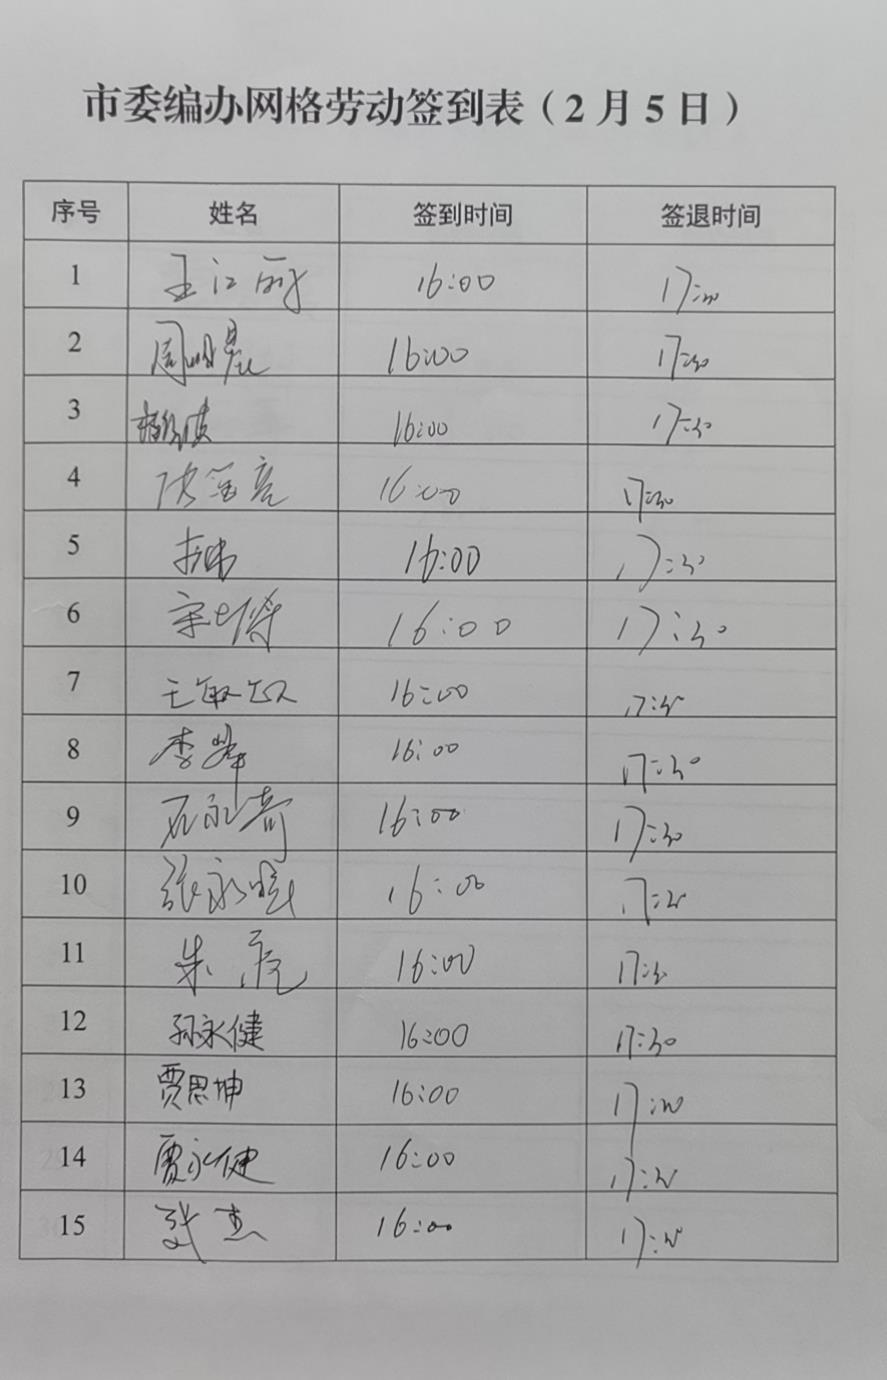 市委编办网格劳动签到表（2月5日）
序号 姓名 签到时间 签退时间
1 王江丽 16:00 17:30
2 周明晨 16:00 17:30
3 16:00 17:30
4 16:00 17:30
5 16:00 17:30
6 16:00 17:30
7 王敏 16:00 17:30
8 李峰 16:00 17:30
9 石永奇 16:00 17:30
10 张永 16:00 17:30
11 朱虎 16:00 17:30
12 孙永健 16:00 17:30
13 贾思坤 16:00 17:30
14 贾永健 16:00 17:30
15 张杰 16:00 17:30